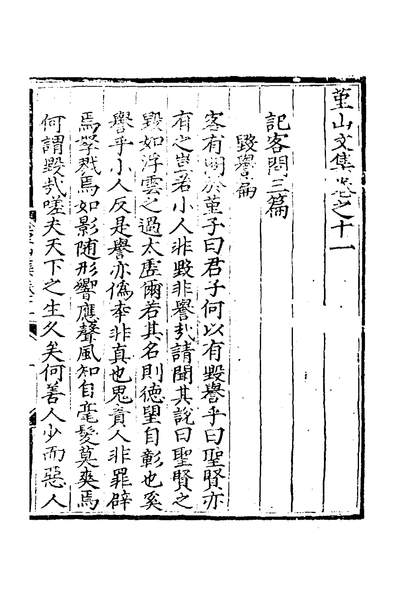 堇山文集卷之十一
記客問三篇
毀譽篇
客有問於堇子曰君子何以有毀譽乎曰聖賢亦
有之豈若小人非毀非譽哉請聞其說曰聖賢之
毀如浮雲之過太虛爾若其名則德望自彰也奚
譽乎小人反是譽亦僞奉非真也鬼責人非罪辟
焉孥戮焉如影随形響應聲風知自毫髮莫爽焉
何謂毀哉嗟夫天下之生久矣何善人少而惡人